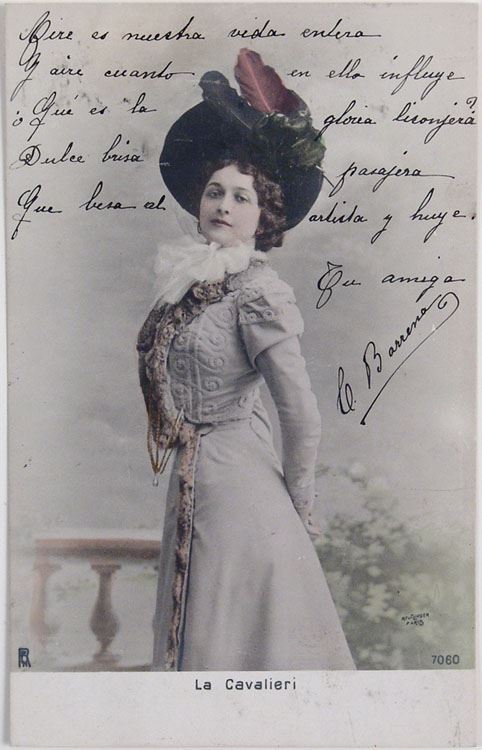 Aire es nuestra vida entera
Y aire cuanto en ella influye
¿Qué es la gloria lisonjera?
Dulce brisa pasajera
Que besa al artista y huye.
Tu amiga
C. Barrena
REUTLINGER
PARIS
7060
La Cavalieri